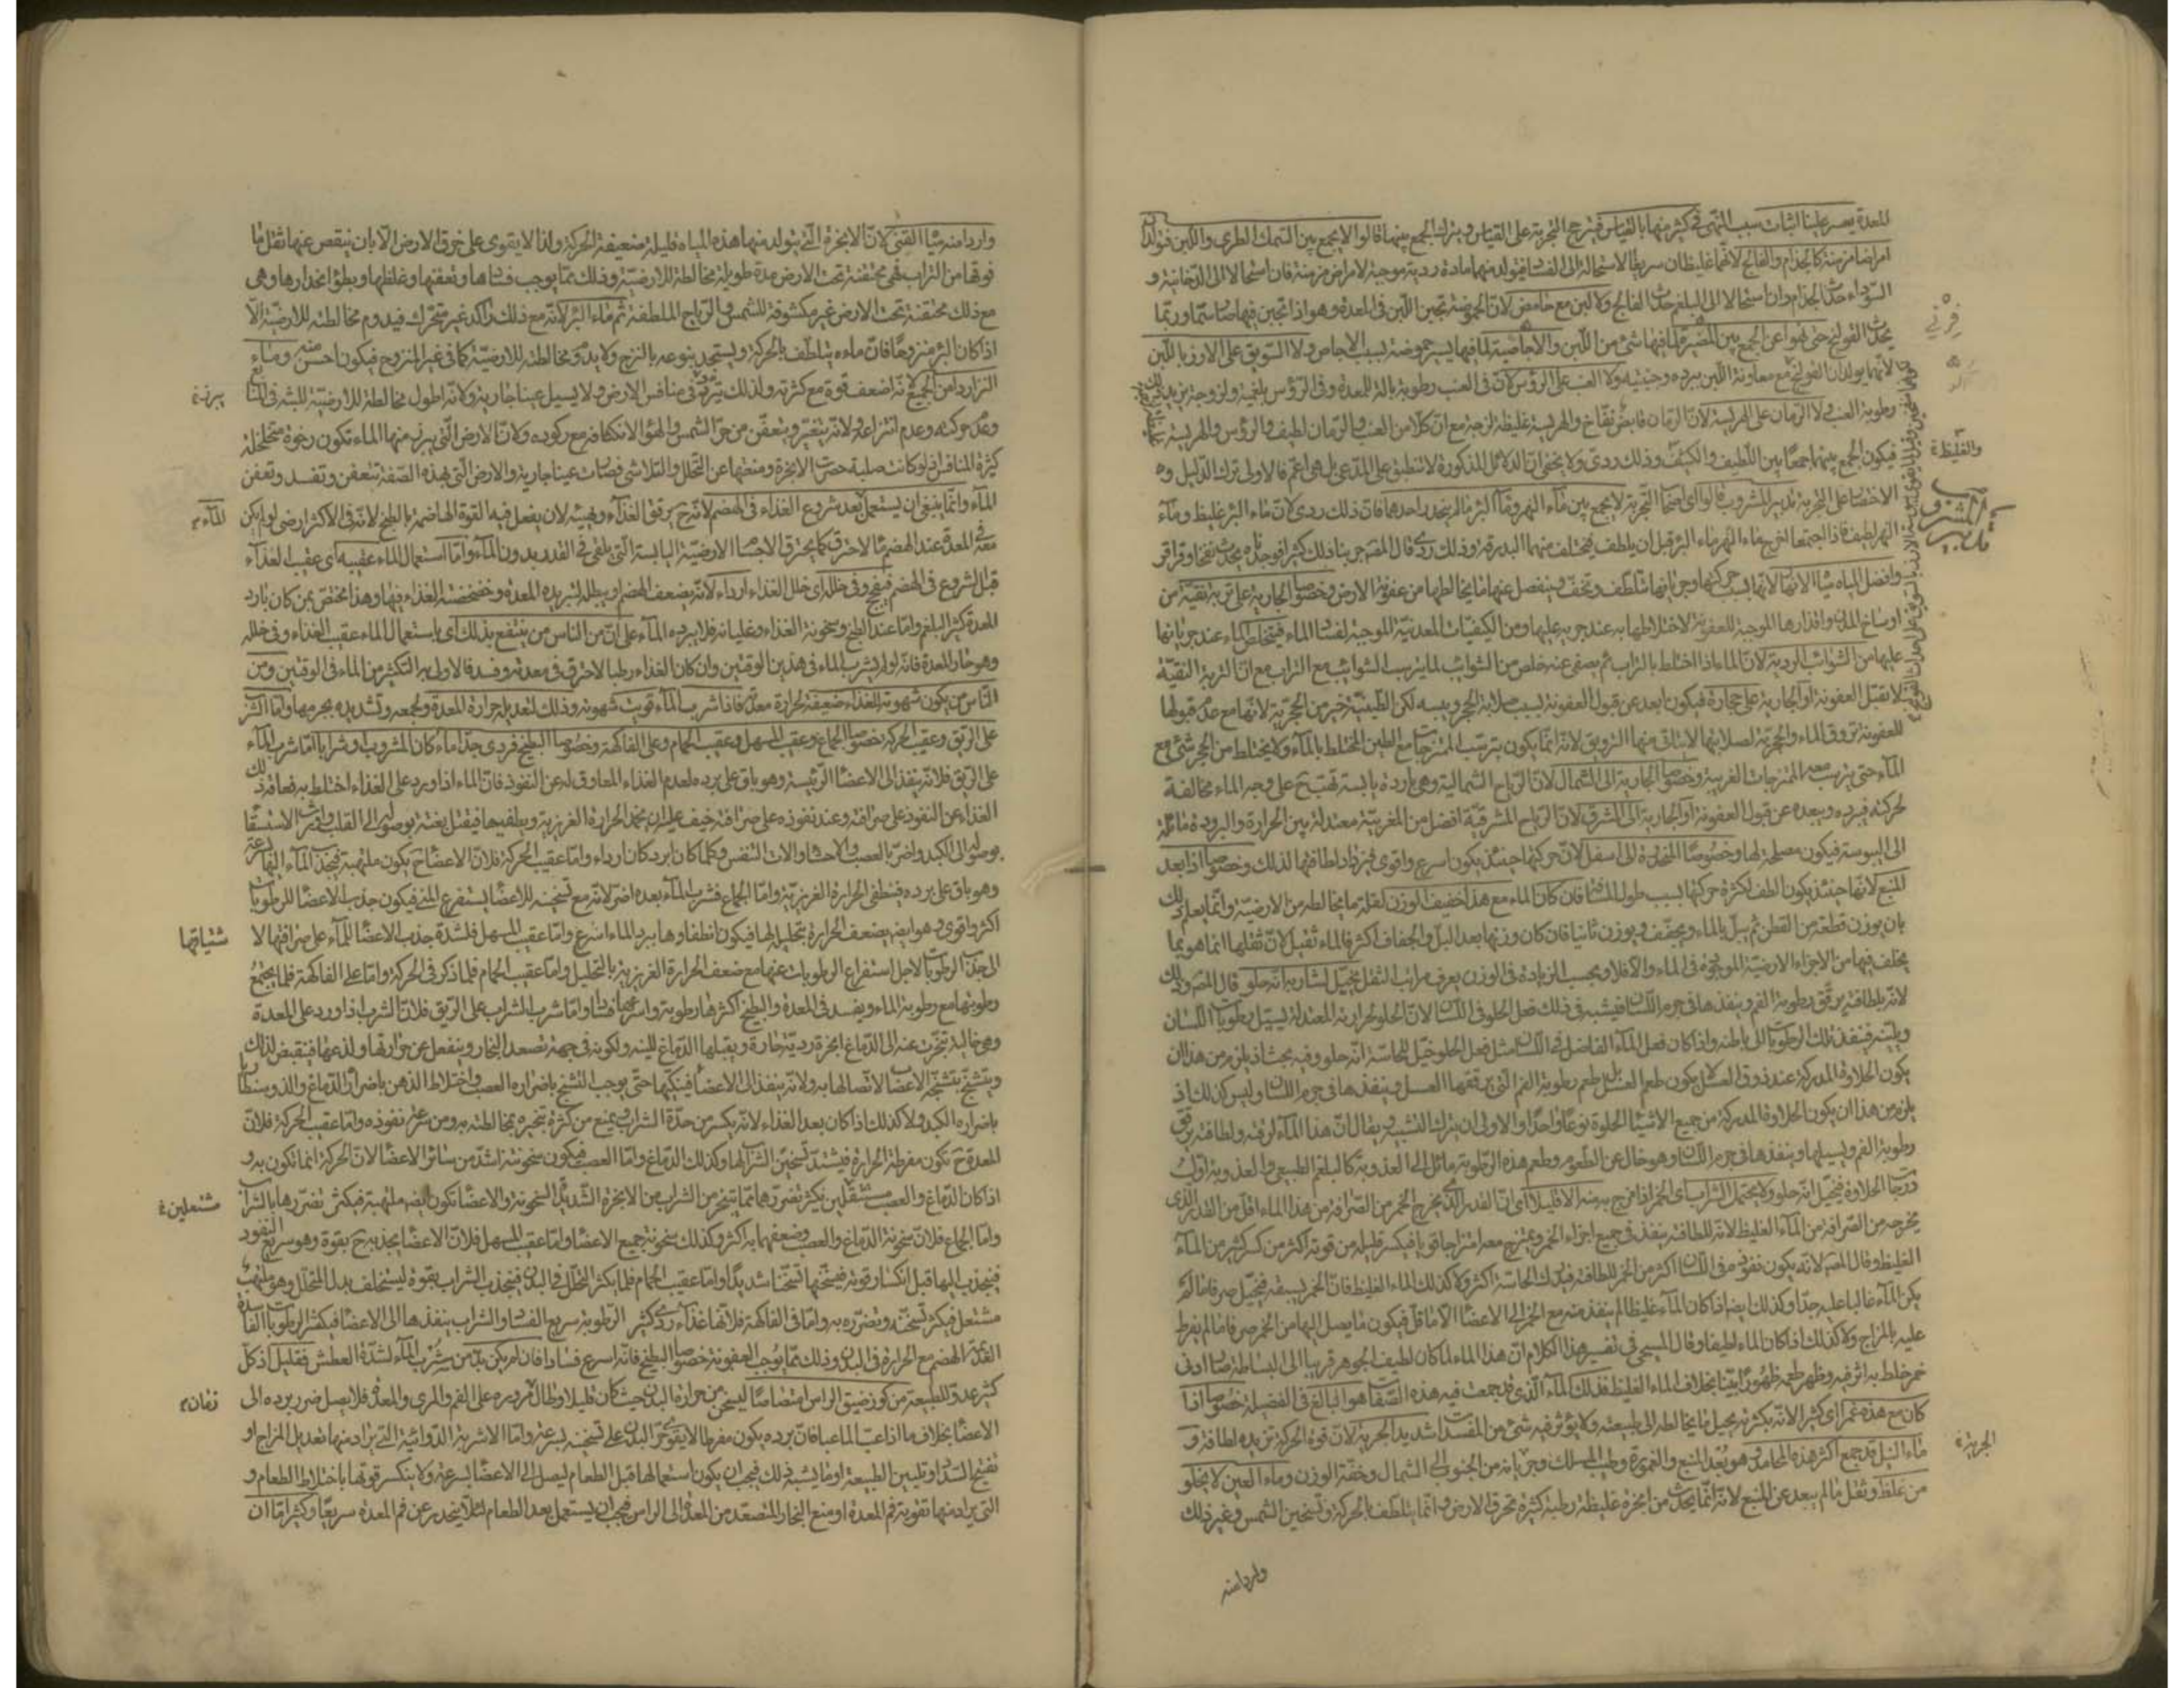 للمعدة يعسر علينا اثبات سبب النهى فى كثير منها بالقياس فترجح التجربة على القياس ويترك الجمع بينها قالوا لا يجمع بين السمك الطرى واللبن فيولدان
امراضا مزمنة كالجذام والفالج لانهما غليظان سريعا الاستحالة الى الفساد فيتولد منهما مادة ردية موجبة لامراض مزمنة فان استحالا الى الدخانية و
السوداء حدث الجذام وان استحالا الى البلغم حدث الفالج ولا لبن مع حامض لان الحموضة تجبن اللبن فى المعدة وهو اذا تجبن فيها صار سما وربما
يحدث القولنج حتى نهوا عن الجمع بين المضيرة لما فيها شئ من اللبن والاجاصية لما فيها يسير حموضة لسبب الاجاص ولا السويق على الارز باللبن
لانهما يولدان القولنج مع معاونة اللبن ببرده وجبنيته ولا العنب على الرؤس لان فى العنب رطوبة بالة للمعدة وفى الرؤس بلغمية ولزوجة يزيد
رطوبة العنب ولا الرمان على الهريسة لان الرمان قابض نفاخ والهريسة غليظة لزجة مع ان كلا من العنب والرمان لطيف والرؤس والهريسة
فيكون الجمع بينهما جمعا بين اللطيف والكثيف وذلك ردى ولا يخفى ان الدلائل المذكورة لا تنطبق على المدعى بل هى اعم فالاولى ترك الدليل و
الاختصار على التجربة تدبير المشروب قالوا اى اصحاب التجربة لا يجمع بين ماء النهر وماء البئر ما لم ينحدر احدهما فان ذلك ردى لان ماء البئر غليظ وماء
النهر لطيف فاذا اجتمعا
وافضل المياه مياه الانهار لانها بسبب حركتها وجريانها تتلطف وتخف وينفصل عنها ما يخالطها من عفونة الارض وخصوصا الجارية على تربة نقية من
اوساخ المدن واقذارها الموجبة للعفونة لاختلاطها به عند جريه عليها ومن الكيفيات المعدنية الموجبة لفساد الماء فيتخلص الماء عند جريانها
عليها من الشوائب الردية لان الماء اذا اختلط بالتراب ثم يصفى عنه خلص من الشوائب لما يترسب الشوائب مع التراب مع ان التربة النقية
لا تقبل العفونة او الجارية على حجارة فيكون ابعد عن قبول العفونة لسبب صلابة الحجر ويبسه لكن الطينية خير من الحجرية لانها مع عدم قبولها
للعفونة تروق الماء والحجرية لصلابتها لا يتاتى منها الترويق لانه انما يكون بترسب الممتزجات مع الطين المختلط بالماء ولا يختلط من الحجر شئ مع
الماء حتى يرسب معه الممتزجات الغريبة وخصوصا الجارية الى الشمال لان الرياح الشمالية وهى باردة يابسة تهب ح على وجه الماء مخالفة
لحركته فيبرده ويبعده عن قبول العفونة او الجارية الى المشرق لان الرياح المشرقية افضل من المغربية معتدلة بين الحرارة والبرودة مائلة
الى اليبوسة فيكون مصلحة لها وخصوصا المنحدرة الى اسفل لان حركتها حينئذ يكون اسرع واقوى فيزداد لطافتها لذلك وخصوصا اذا بعد
المنبع لانها حينئذ يكون الطف لكثرة حركتها بسبب طول المسافة فان كان الماء مع هذا خفيف الوزن لقلة ما يخالطه من الارضية وانما يعلم ذلك
بان يوزن قطعة من القطن ثم يبل بالماء ويجفف ويوزن ثانيا فان كان وزنها بعد البل والجفاف اكثر فالماء ثقيل لان ثقلها انما هو بما
يختلف فيها من الاجزاء الارضية الموجودة فى الماء والا فلا وبحسب الزيادة فى الوزن يعرف مراتب الثقل يخيل لشاربه انه حلو قال المصـ وذلك
لانه بلطافته يرقق رطوبة الفم وينفذها فى جرم اللسان فيشبه فى ذلك فعل الحلو فى اللسان لان الحلو لحرارته المعتدلة يسيل رطوبات اللسان
ويلينه فينفذ تلك الرطوبات الى باطنه واذا كان فعل الماء الفاضل فى اللسان مثل فعل الحلو خيل للحاسة انه حلو وفيه بحث اذ يلزم من هذا ان
يكون الحلاوة المدركة عند ذوق العسل لا يكون طعم العسل بل طعم رطوبة الفم التى يرققها العسل وينفذها فى جرم اللسان وليس كذلك اذ
يلزم من هذا ان يكون الحلاوة المدركة من جميع الاشياء الحلوة نوعا واحدا والاولى ان يترك التشبيه ويقال ان هذا الماء لرقته ولطافته يرقق
رطوبة الفم ويسيلها وينفذها فى جرم اللسان وهو خال عن الطعوم وطعم هذه الرطوبة مائل الى العذوبة كالبلغم الطبيعى والعذوبة اول
درجات الحلاوة فيخيل انه حلو ولا يحتمل الشراب اى الخمر اذا مزج به منه الا قليلا اى ان القدر الذى يخرج الخمر من الصرافة من هذا الماء اقل من القدر الذى
يخرجه من الصرافة من الماء الغليظ لانه للطافته ينفذ فى جميع اجزاء الخمر ويمتزج معه امتزاجا قويا فيكسر قليله من قوته اكثر من كسر كثير من الماء
الغليظ وقال المصـ لانه يكون نفوذه فى اللسان اكثر من الخمر للطافته فيدرك الحاسة اكثر ولا كذلك الماء الغليظ فان الخمر يسبقه فيتخيل صرفا ما لم
يكن الماء غالبا عليه جدا وكذلك ايضا اذا كان الماء غليظا لم ينفذ منه مع الخمر الى الاعضاء الا ما قل فيكون ما يصل اليها من الخمر صرفا ما لم يفرط
عليه بالمزاج ولا كذلك اذا كان الماء لطيفا وقال المسيحى فى تفسير هذا الكلام ان هذا الماء لما كان لطيف الجوهر قريبا الى البساطة صار ادنى
خمر خلط به اثر فيه وظهر طعمه ظهورا بينا بخلاف الماء الغليظ فذلك الماء الذى قد جمعت فيه هذه الصفات هو البالغ فى الفضيلة خصوصا اذا
كان مع هذه غمرا اى كثيرا لانه بكثرته يحيل ما يخالطه الى طبيعته ولا يؤثر فيه شئ من المفسدات شديد الجرية لان قوة الحركة تزيده لطافة و
ماء النيل قد جمع اكثر هذه المحامد وهو بعد المنبع والغمورة وطيب المسلك وجريانه من الجنوب الى الشمال وخفة الوزن وماء العين لا يخلو
من غلظ وثقل ما لم يبعد عن المنبع لانه انما يحدث من ابخرة غليظة رطبة كثيرة تخرق الارض وانما يتلطف بالحركة وتسخين الشمس وغير ذلك
واردا منه
قرنى
والغليظ
تدبير المشروب
الجرية
واردا منه مياه القنى لان الابخرة التى يتولد منها هذه المياه قليلة ضعيفة الحركة ولذا لا يقوى على خرق الارض الا بان ينقص عنها ثقل ما
فوقها من التراب فهى محتقنة تحت الارض مدة طويلة مخالطة للارضية وذلك مما يوجب فسادها وتعفنها وغلظها وبطؤ انحدارها وهى
مع ذلك محتقنة تحت الارض غير مكشوفة للشمس والرياح الملطفة ثم ماء البئر لانه مع ذلك راكد غير متحرك فيدوم مخالطته للارضية الا
اذا كان البئر منزوحا فان ماءه يتلطف بالحركة ويستجد ينبوعه بالنزح ولا يدوم مخالطته للارضية كما فى غير المنزوح فيكون احسن منه وماء
النز اردأ من الجميع لانه اضعف قوة مع كثرته ولذلك يتردد فى منافس الارض ولا يسيل عينا جارية ولانه اطول مخالطة للارضية للبثه فى المنابع
وعدم حركته وعدم انتزاعه ولانه يتغير ويتعفن من حر الشمس والهواء لانكشافه مع ركوده ولان الارض التى يبرز منها الماء تكون رخوة متخلخلة
كثيرة المنافس اذ لو كانت صلبة حصرت الابخرة ومنعتها عن التحلل والتلاشى فصارت عينا جارية والارض التى بهذه الصفة تتعفن وتفسد وتعفن
الماء وانما ينبغى ان يستعمل بعد شروع الغذاء فى الهضم لانه ح يرقق الغذاء ويهيئه لان يفعل فيه القوة الهاضمة بالطبخ لانه فى الاكثر ارضى لو لم يكن
معه فى المعدة عند الهضم ماء لاحترق كما يحترق الاجسام الارضية اليابسة التى يلقى فى القدر بدون الماء واما استعمال الماء عقيبه اى عقيب الغذاء
قبل الشروع فى الهضم فيفجج وفى خلله اى خلل الغذاء اردأ لانه يضعف الهضم او يبطله لتبريده المعدة وخضخضته الغذاء فيها وهذا مختص بمن كان بارد
المعدة كثير البلغم واما عند الطبخ وسخونة الغذاء وغليانه فلا يبرده الماء على ان من الناس من ينتفع بذلك اى باستعمال الماء عقيب الغذاء وفى خلله
وهو حار المعدة فانه لو لم يشرب الماء فى هذين الوقتين وان كان الغذاء رطبا لاحترق فى معدته وفسد فالاولى به التكثير من الماء فى الوقتين ومن
الناس من يكون شهوته للغذاء ضعيفة لحرارة معدته فاذا شرب الماء قويت شهوته وذلك لتعديل حرارة المعدة ولجمعه وتشديده بجرمها واما الشرب
على الريق وعقيب الحركة خصوصا الجماع وعقيب المسهل وعقيب الحمام وعلى الفاكهة وخصوصا البطيخ فردى جدا ماء كان المشروب او شرابا اما شرب الماء
على الريق فلانه ينفذ الى الاعضاء الرئيسة وهو باق على برده لعدم الغذاء المعاوق له عن النفوذ فان الماء اذا ورد على الغذاء اختلط به فعاقه ذلك
الغذاء عن النفوذ على صرافته وعند نفوذه على صرافته خيف عليه ان يخمد الحرارة الغريزية ويطفيها فيقتل بغتة بوصوله الى القلب واورث الاستسقاء
بوصوله الى الكبد واضر بالعصب والاحشاء والات التنفس وكلما كان ابرد كان اردأ واما عقيب الحركة فلان الاعضاء ح يكون ملتهبة فيجذب الماء بسرعة
وهو باق على برده فينطفى الحرارة الغريزية واما الجماع فشرب الماء بعده اضر لانه مع تسخينه للاعضاء يستفرغ المنى فيكون جذب الاعضاء للرطوبات
اكثر واقوى وهو ايضا يضعف الحرارة بتحليله لها فيكون انطفاؤها ببرد الماء اسرع واما عقيب المسهل فلشدة جذب الاعضاء للماء على صرافتها
الى جذب الرطوبات لاجل استفراغ الرطوبات عنها مع ضعف الحرارة الغريزية بالتحليل واما عقيب الحمام فلما ذكر فى الحركة واما على الفاكهة فلما يجتمع
رطوبتها مع رطوبة الماء ويفسد فى المعدة والبطيخ اكثرها رطوبة واسرعها فسادا واما شرب الشراب على الريق فلان الشراب اذا ورد على المعدة
وهى خالية تبخر عنه الى الدماغ ابخرة ردية حارة ويقبلها الدماغ للينه ولكونه فى جهة تصعد البخار وينفعل عن حرارتها ولذعها فينقبض لذلك
ويتشنج بتشنجه الاعصاب لاتصالها به ولانه ينفذ الى الاعضاء فينكيها حتى يوجب التشنج باضراره العصب واختلاط الذهن باضراره الدماغ
باضراره الكبد ولا كذلك اذا كان بعد الغذاء لانه يكسر من حدة الشراب ويمنع من كثرة تبخره بمخالطته به ومن سرعة نفوذه واما عقيب الحركة فلان
المعدة ح تكون مفرطة الحرارة فيشتد تسخين الشراب لها وكذلك الدماغ واما العصب فيكون سخونته اشد من سائر الاعضاء لان الحركة انما تكون به و
اذا كان الدماغ والعصب مشتعلين يكثر تضررهما بما يتبخر من الشراب من الابخرة الشديدة السخونة والاعضاء تكون ايضا ملتهبة فيكثر تضررها بالشراب
واما الجماع فلان سخونة الدماغ والعصب وضعفهما به اكثر وكذلك سخونة جميع الاعضاء واما عقيب المسهل فلان الاعضاء يجذبه ح بقوة وهو سريع النفوذ
فينجذب اليها قبل انكسار قوته فيسخنها تسخينا شديدا واما عقيب الحمام فلما يكثر التحلل فى البدن فينجذب الشراب بقوة ليستخلف بدل المتحلل وهو ملتهب
مشتعل فيكثر تسخنه وتضرره به واما فى الفاكهة فلانها غذاء ردى كثير الرطوبة سريع الفساد والشراب ينفذها الى الاعضاء فيكثر الرطوبات الفاسدة
الهضم مع الحرارة فى البدن وذلك مما يوجب العفونة خصوصا البطيخ فانه اسرع فسادا فان لم يكن بد من شرب الماء لشدة العطش فقليل اذ كل
كثير عدو للطبيعة من كوز ضيق الراس امتصاصا ليسخن من حرارة البدن حيث كان قليلا وطال مروره على الفم والمرى والمعدة فلا يصل ضرر برده الى
الاعضاء بخلاف ما اذا عب الماء عبا فان برده يكون مفرطا لا يقوى حر البدن على تسخينه بسرعة واما الاشربة الدوائية التى يراد منها تعديل المزاج او
تفتيح السدد او تليين الطبيعة او ما يشبه ذلك فيجب ان يكون استعمالها قبل الطعام ليصل الى الاعضاء بسرعة ولا ينكسر قوتها باختلاط الطعام و
التى يراد منها تقوية فم المعدة او منع البخار المتصعد من المعدة الى الراس فيجب ان يستعمل بعد الطعام لئلا ينحدر عن فم المعدة سريعا وكثيرا ما ان
يبرز
الماء
شتياقها
مشتعلين
زمان